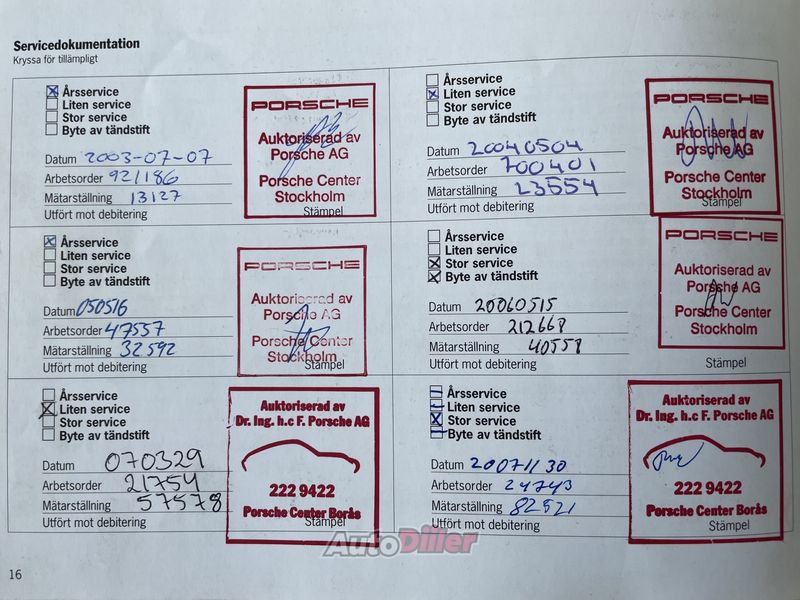 Servicedokumentation
Kryssa för tillämpligt
Årsservice
Liten service
Stor service
Byte av tändstift
Datum 2003-07-07
Arbetsorder 921186
Mätarställning 13127
Utfört mot debitering
PORSCHE
Auktoriserad av
Porsche AG
Porsche Center
Stockholm
Stämpel
Årsservice
Liten service
Stor service
Byte av tändstift
Datum 20040504
Arbetsorder 700401
Mätarställning 23554
Utfört mot debitering
PORSCHE
Auktoriserad av
Porsche AG
Porsche Center
Stockholm
Stämpel
Årsservice
Liten service
Stor service
Byte av tändstift
Datum 050516
Arbetsorder 47557
Mätarställning 32592
Utfört mot debitering
PORSCHE
Auktoriserad av
Porsche AG
Porsche Center
Stockholm
Stämpel
Årsservice
Liten service
Stor service
Byte av tändstift
Datum 20060515
Arbetsorder 212668
Mätarställning 40558
Utfört mot debitering
PORSCHE
Auktoriserad av
Porsche AG
Porsche Center
Stockholm
Stämpel
Årsservice
Liten service
Stor service
Byte av tändstift
Datum 070329
Arbetsorder 21754
Mätarställning 57578
Utfört mot debitering
Auktoriserad av
Dr. Ing. h.c F. Porsche AG
222 9422
Porsche Center Borås
Stämpel
Årsservice
Liten service
Stor service
Byte av tändstift
Datum 20071130
Arbetsorder 24743
Mätarställning 82521
Utfört mot debitering
Auktoriserad av
Dr. Ing. h.c F. Porsche AG
222 9422
Porsche Center Borås
Stämpel
AutoDiller
16